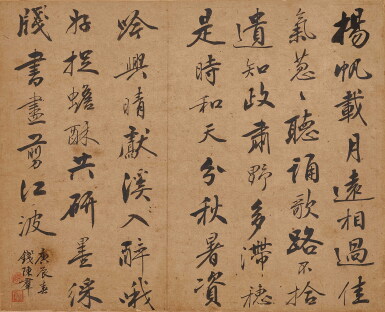 揚帆載月遠相過佳
氣葱〻聽誦歌路不拾
遺知政肅野多滯穗
是時和天分秋暑資
吟興晴獻溪入醉哦
好捉蟾酥共研墨綵
牋書盡剪江波
庚辰春
錢陳羣